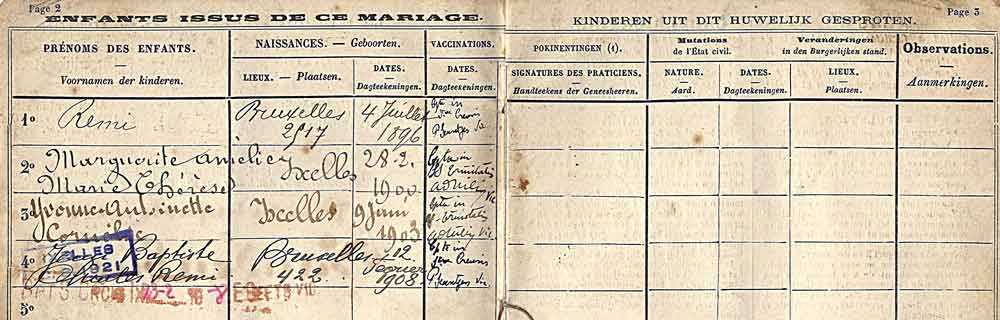 Page 2
Page 3
ENFANTS ISSUS DE CE MARIAGE.
KINDEREN UIT DIT HUWELIJK GESPROTEN.
PRÉNOMS DES ENFANTS.
Voornamen der kinderen.
NAISSANCES. — Geboorten.
LIEUX. — Plaatsen.
DATES.
Dagteekeningen.
VACCINATIONS
DATES.
Dagteekeningen.
POKINENTINGEN (1).
SIGNATURES DES PRATICIENS.
Handteekens der Geneesheeren.
Mutations
de l'État civil.
Veranderingen
in den Burgerlijken stand.
NATURE.
Aard.
DATES.
Dagteekeningen.
LIEUX.
Plaatsen.
Observations.
Aanmerkingen.
1o Remi
Bruxelles
2517
4 Juillet
1896
2o Marguerite Amélie
Marie Thérèse
Ixelles
28-2.
1900
3o Yvonne Antoinette
Ixelles
9 Juin
1903
4o Baptiste
Charles Remi
Bruxelles
422
12
1908.
5o
ELLES
1921